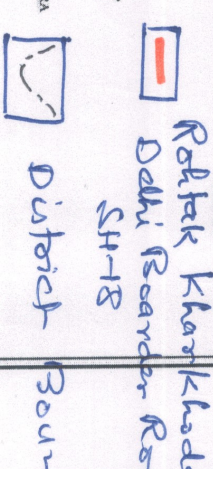 Rohtak Kharkhoda
Delhi Boarder Ro
SH-18
District Boun